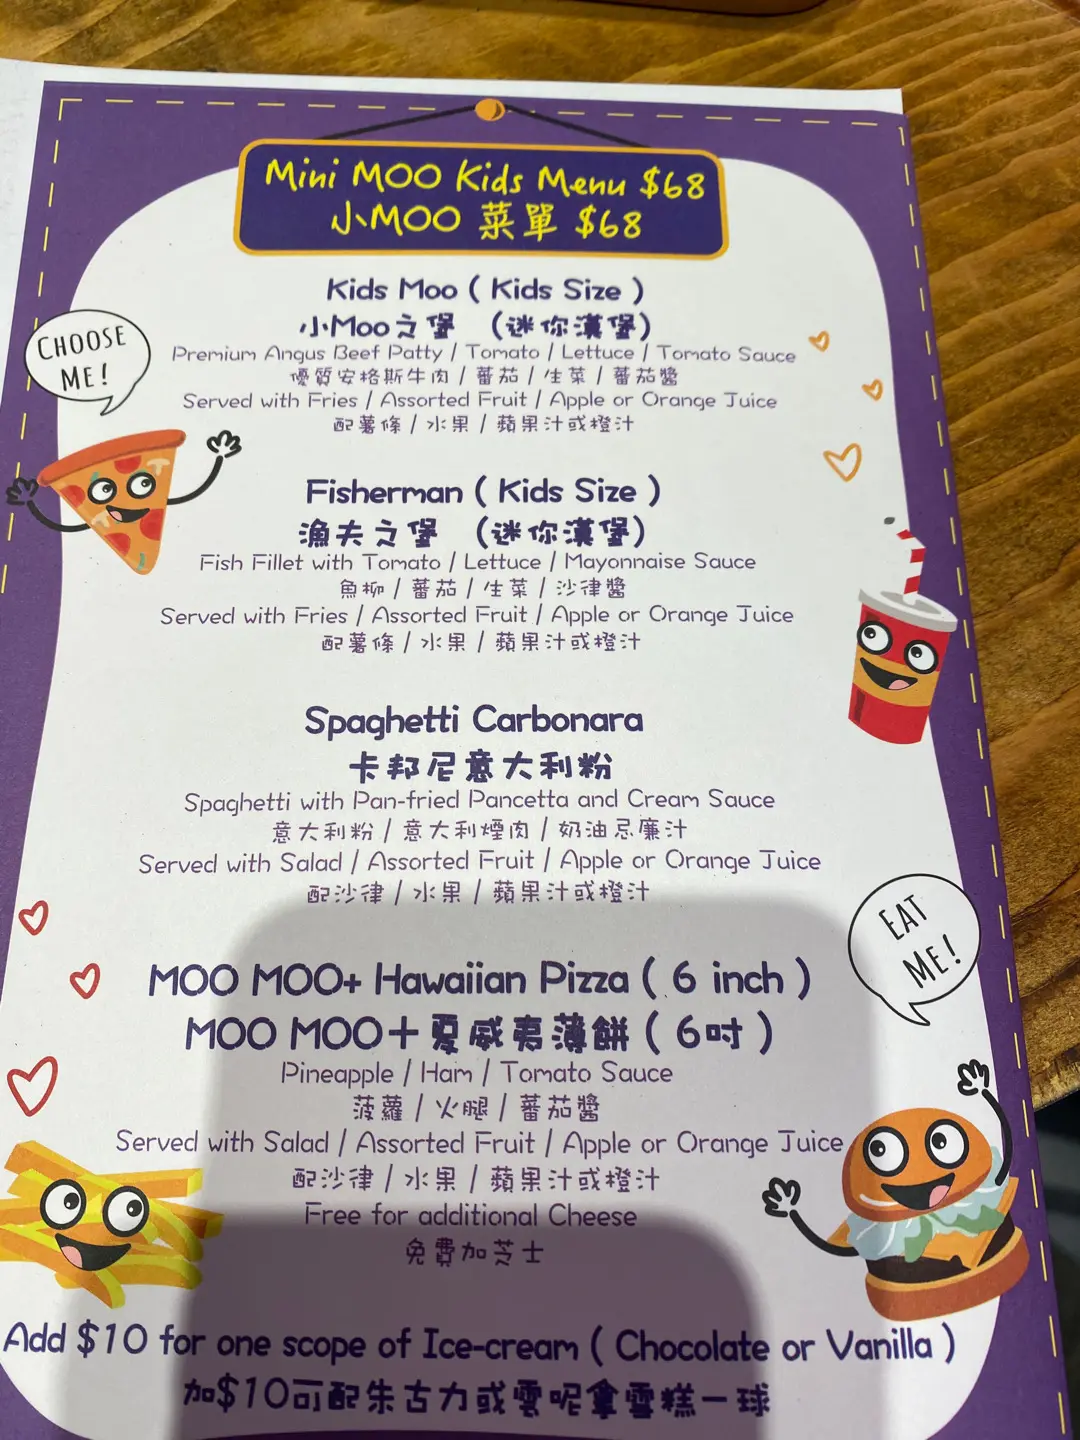 Mini MOO Kids Menu $68
小MOO 菜單 $68
Kids Moo ( Kids Size )
小Moo之堡 (迷你漢堡)
CHOOSE
ME!
Premium Angus Beef Patty / Tomato / Lettuce / Tomato Sauce
優質安格斯牛肉 / 蕃茄 / 生菜 / 蕃茄醬
Served with Fries / Assorted Fruit / Apple or Orange Juice
配薯條 / 水果 / 蘋果汁或橙汁
Fisherman ( Kids Size )
漁夫之堡 (迷你漢堡)
Fish Fillet with Tomato / Lettuce / Mayonnaise Sauce
魚柳 / 蕃茄 / 生菜 / 沙律醬
Served with Fries / Assorted Fruit / Apple or Orange Juice
配薯條 / 水果 / 蘋果汁或橙汁
Spaghetti Carbonara
卡邦尼意大利粉
Spaghetti with Pan-fried Pancetta and Cream Sauce
意大利粉 / 意大利煙肉 / 奶油忌廉汁
Served with Salad / Assorted Fruit / Apple or Orange Juice
配沙律 / 水果 / 蘋果汁或橙汁
EAT
ME!
MOO MOO+ Hawaiian Pizza ( 6 inch )
MOO MOO+夏威夷薄餅 ( 6吋 )
Pineapple / Ham / Tomato Sauce
菠蘿 / 火腿 / 蕃茄醬
Served with Salad / Assorted Fruit / Apple or Orange Juice
配沙律 / 水果 / 蘋果汁或橙汁
Free for additional Cheese
免費加芝士
Add $10 for one scope of Ice-cream ( Chocolate or Vanilla )
加$10可配朱古力或雲呢拿雪糕一球